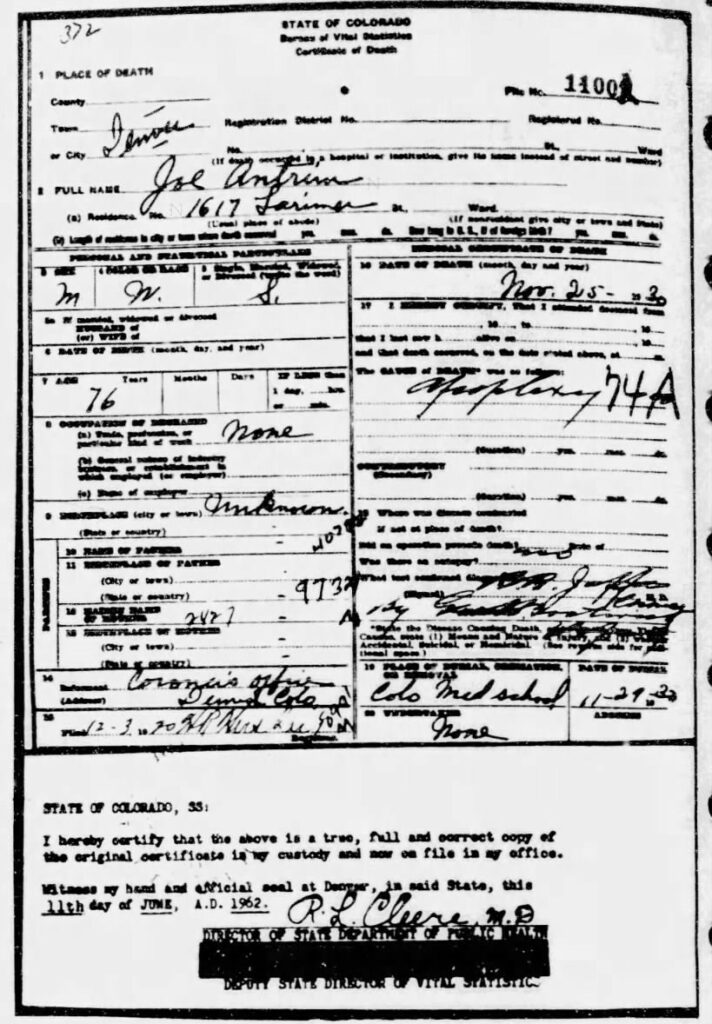 372
STATE OF COLORADO
Bureau of Vital Statistics
Certificate of Death
1 PLACE OF DEATH
County
File No. 11001
Town
or City Denver
Registration District No. Registered No.
No. St. Ward
(If death occurred in a hospital or institution, give its name instead of street and number)
2 FULL NAME Joe Antrim
(a) Residence. No. 1617 Larimer St. Ward.
(Usual place of abode) (If nonresident give city or town and State)
(b) Length of residence in city or town where death occurred yrs. mos. ds. How long in U. S., if of foreign birth? yrs. mos. ds.
PERSONAL AND STATISTICAL PARTICULARS
3 SEX 4 COLOR OR RACE 5 Single, Married, Widowed, or Divorced (write the word)
M W. S.
5a If married, widowed or divorced
HUSBAND of
(or) WIFE of
6 DATE OF BIRTH (month, day, and year)
7 AGE Years Months Days IF LESS than
1 day, hrs.
or min.
76
8 OCCUPATION OF DECEASED
(a) Trade, profession, or
particular kind of work None
(b) General nature of industry
business, or establishment in
which employed (or employer)
(c) Name of employer
9 BIRTHPLACE (city or town) Unknown.
(State or country)
PARENTS
10 NAME OF FATHER
11 BIRTHPLACE OF FATHER
(City or town)
(State or country) 9732
12 MAIDEN NAME
OF MOTHER 2427
13 BIRTHPLACE OF MOTHER
(City or town)
(State or country)
14
Informant Coroner's office
(Address) Denver Colo
15
Filed 12-3 19 30
Registrar.
MEDICAL CERTIFICATE OF DEATH
16 DATE OF DEATH (month, day and year)
Nov. 25- 19 30
17 I HEREBY CERTIFY, That I attended deceased from
19 to 19
that I last saw h alive on 19
and that death occurred, on the date stated above, at m.
The CAUSE of DEATH* was as follows:
Apoplexy 74A
(Duration) yrs. mos. ds.
CONTRIBUTORY
(Secondary)
(Duration) yrs. mos. ds.
18 Where was disease contracted
if not at place of death?
Did an operation precede death? no Date of
Was there an autopsy?
What test confirmed
(Signed) M. D.
By
*State the Disease Causing Death,
Causes, state (1) Means and Nature of Injury, and (2)
Accidental, Suicidal or Homicidal (See reverse side for
tional space)
19 PLACE OF BURIAL, CREMATION, OR REMOVAL DATE OF BURIAL
Colo Med school 11-29-30
20 UNDERTAKER ADDRESS
None
STATE OF COLORADO, SS:
I hereby certify that the above is a true, full and correct copy of
the original certificate in my custody and now on file in my office.
Witness my hand and official seal at Denver, in said State, this
11th day of JUNE, A.D. 1962.
R. L. Cleere, M.D
DIRECTOR OF STATE DEPARTMENT OF PUBLIC HEALTH
DEPUTY STATE DIRECTOR OF VITAL STATISTICS